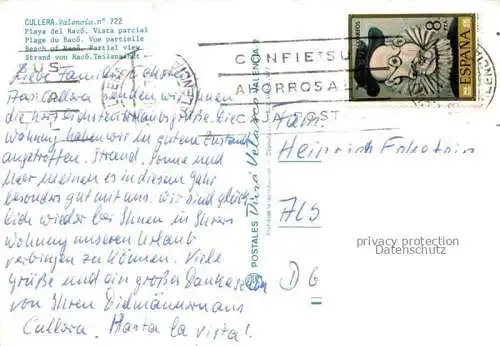 CULLERA. Valencia. nº 722
Playa del Racó. Vista parcial
Plage du Racó. Vue partielle
Beach of Racó. Partial view
Strand von Racó. Teilansicht
8 PTA
ESPAÑA
CONFIE SU
AHORROS A L
CAJA POST
Liebe Familie
Aus Cullera senden wir Ihnen
die herzlichsten Urlaubsgrüße. Die
Wohnung haben wir in gutem Zustand
angetroffen. Strand, Sonne und
Meer meinen es in diesem Jahr
besonders gut mit uns. Wir sind glück-
lich wieder bei Ihnen in Ihrer
Wohnung unseren Urlaub
verbingen zu können. Viele
Grüße und ein großes Dankeschön
von Ihren Didmännern aus
Cullera. Hasta la vista!
POSTALES
VALENCIA
Fam.
Heinrich
ALS
D 6
privacy protection
Datenschutz